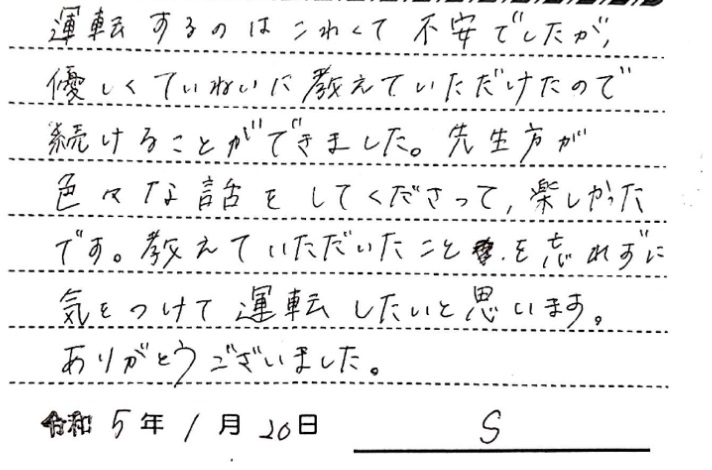 運転するのはこわくて不安でしたが、
優しくていねいに教えていただけたので
続けることができました。先生方が
色々な話をしてくださって、楽しかった
です。教えていただいたことを忘れずに
気をつけて運転したいと思います。
ありがとうございました。
令和5年1月20日 S